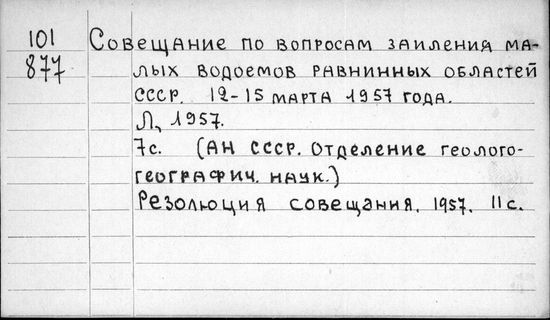 101 Совещание по вопросам заиления ма-
877 лых водоемов равнинных областей
СССР. 12-15 марта 1957 года.
Л., 1957.
7с. (АН СССР. Отделение геолого-
географич. наук.)
Резолюция совещания. 1957. 11с.